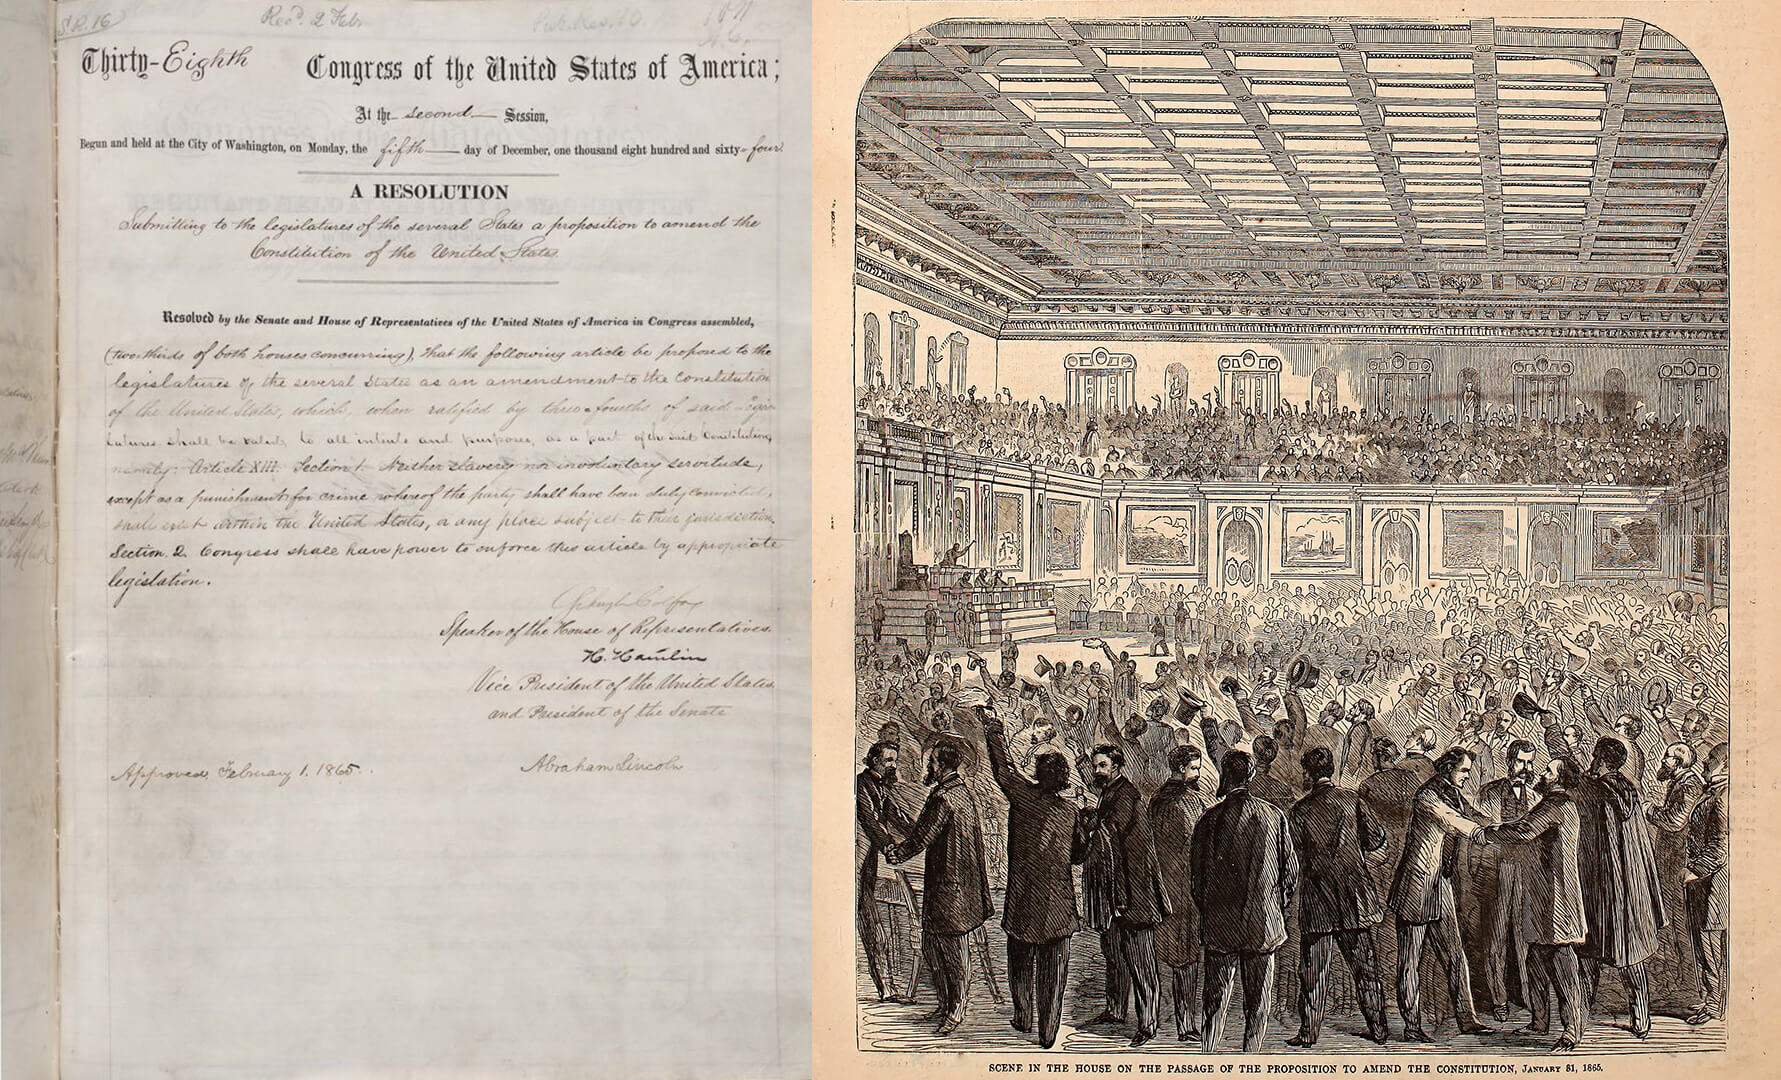 S.R. 16
Rec'd. 2 Feb.
Pub. Res. 10.
Thirty-Eighth Congress of the United States of America;
At the second Session,
Begun and held at the City of Washington, on Monday, the fifth day of December, one thousand eight hundred and sixty-four
A RESOLUTION
Submitting to the legislatures of the several States a proposition to amend the
Constitution of the United States.
Resolved by the Senate and House of Representatives of the United States of America in Congress assembled,
(two-thirds of both houses concurring), that the following article be proposed to the
legislatures of the several States as an amendment to the Constitution
of the United States, which, when ratified by three-fourths of said Legis-
latures shall be valid, to all intents and purposes, as a part of the said Constitution,
namely: Article XIII. Section 1. Neither slavery nor involuntary servitude,
except as a punishment for crime whereof the party shall have been duly convicted,
shall exist within the United States, or any place subject to their jurisdiction.
Section 2. Congress shall have power to enforce this article by appropriate
legislation.
Schuyler Colfax
Speaker of the House of Representatives.
H. Hamlin
Vice President of the United States,
and President of the Senate
Approved, February 1. 1865.
Abraham Lincoln
SCENE IN THE HOUSE ON THE PASSAGE OF THE PROPOSITION TO AMEND THE CONSTITUTION, JANUARY 31, 1865.